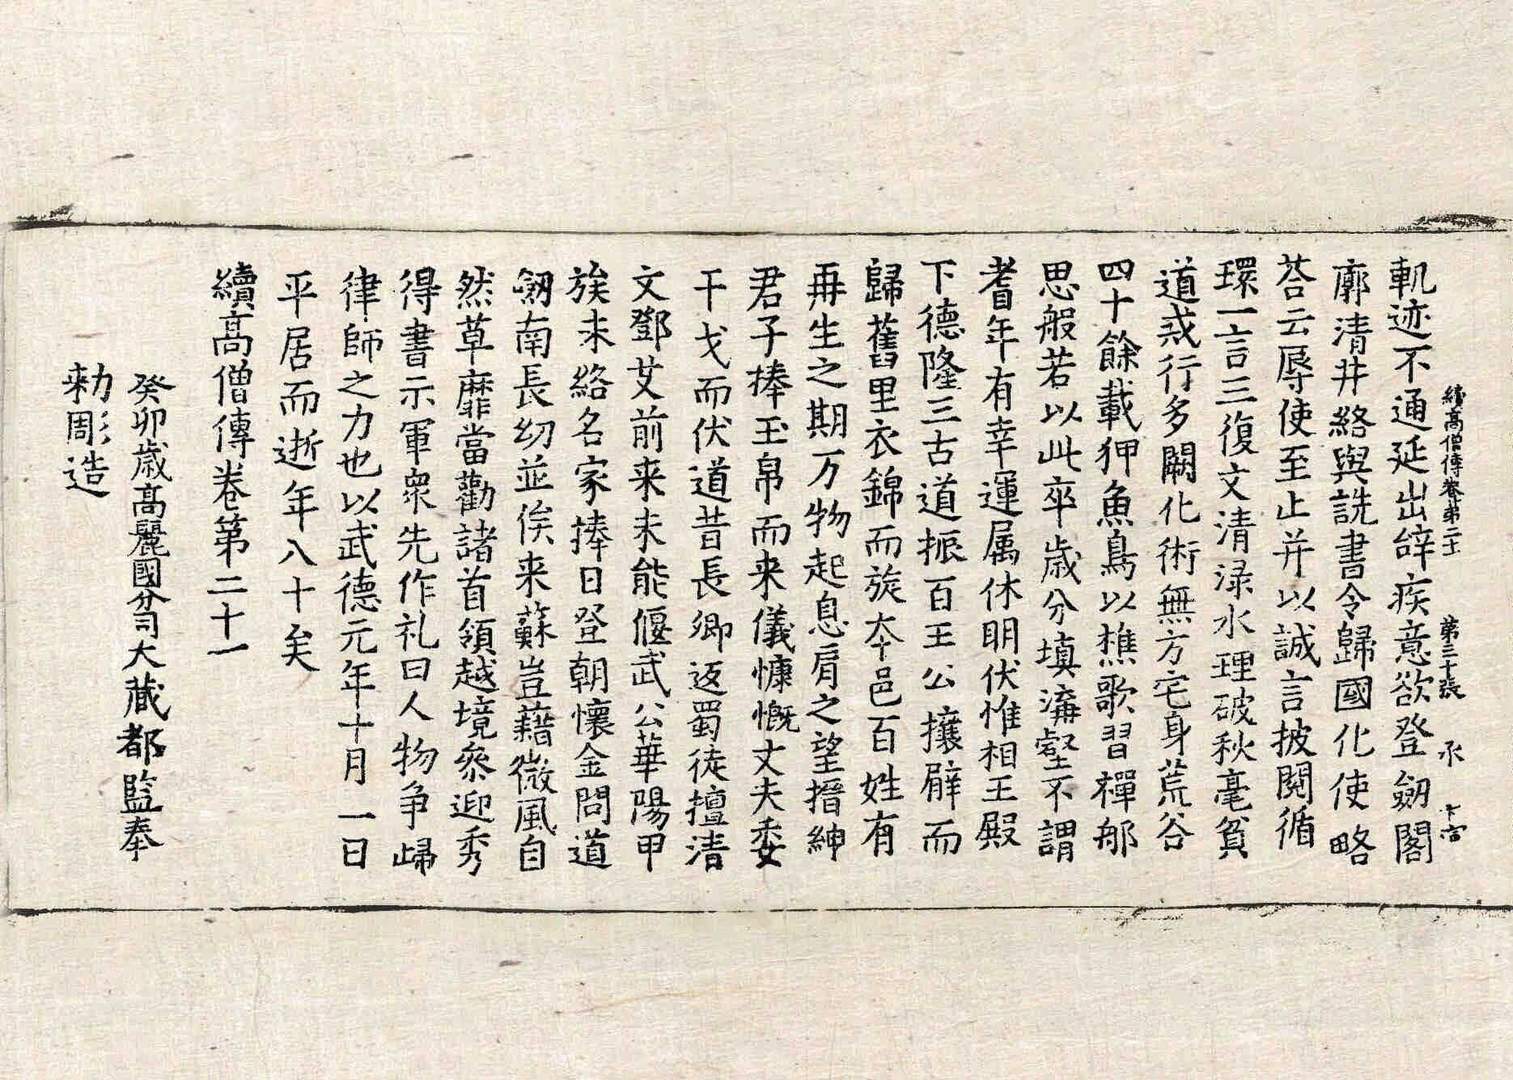 續高僧傳卷第二十一 第三十張 承
軌迹不通延出辝疾意欲登劒閣
廓清井絡與詵書令歸國化使略
荅云辱使至止并以誠言披閱循
環一言三復文清渌水理破秋毫貧
道戒行多闕化術無方宅身荒谷
四十餘載狎魚鳥以樵歌習禪那
思般若以此卒歲分填溝壑不謂
耆年有幸運属休明伏惟相王殿
下德隆三古道振百王公攘臂而
歸舊里衣錦而旋本邑百姓有
再生之期万物起息肩之望搢紳
君子捧玉帛而来儀慷慨丈夫委
干戈而伏道昔長卿返蜀徒擅清
文鄧艾前来未能偃武公華陽甲
族未絡名家捧日登朝懷金問道
劒南長幼並俟来蘇豈藉微風自
然草靡當勸諸首領越境叅迎秀
得書示軍衆先作礼曰人物争歸
律師之力也以武德元年十月一日
平居而逝年八十矣
續高僧傳卷第二十一
癸卯歲高麗國分司大藏都監奉
勑彫造